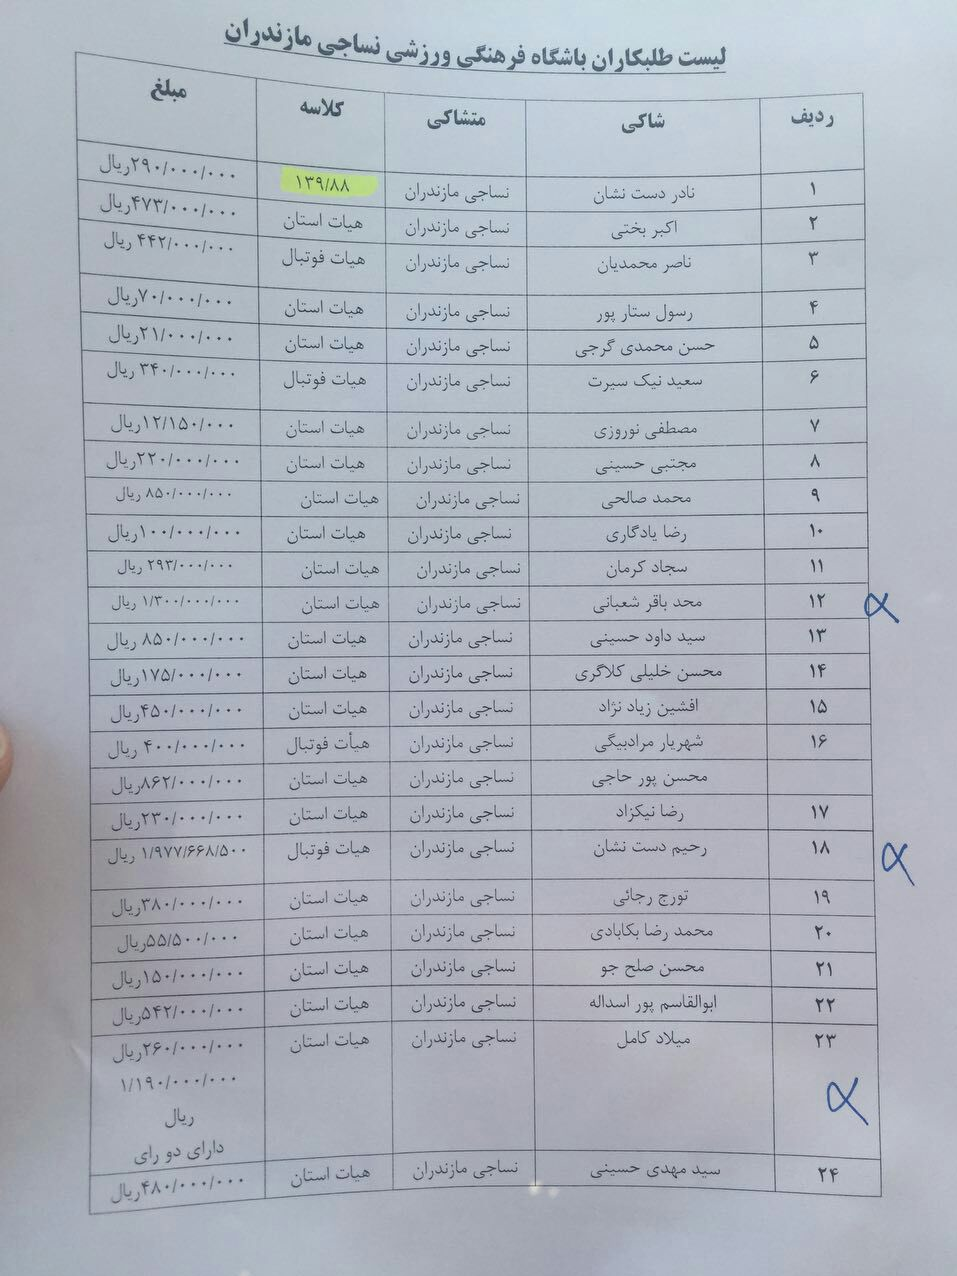 لیست طلبکاران باشگاه فرهنگی ورزشی نساجی مازندران
ردیف شاکی متشاکی کلاسه مبلغ
۱ نادر دست نشان نساجی مازندران ۱۳۹/۸۸ ۲۹۰/۰۰۰/۰۰۰ریال
۲ اکبر بختی نساجی مازندران هیات استان ۴۷۳/۰۰۰/۰۰۰ریال
۳ ناصر محمدیان نساجی مازندران هیات فوتبال ۴۴۲/۰۰۰/۰۰۰ ریال
۴ رسول ستار پور نساجی مازندران هیات استان ۷۰/۰۰۰/۰۰۰ریال
۵ حسن محمدی گرجی نساجی مازندران هیات استان ۲۱/۰۰۰/۰۰۰ریال
۶ سعید نیک سیرت نساجی مازندران هیات فوتبال ۳۴۰/۰۰۰/۰۰۰ ریال
۷ مصطفی نوروزی نساجی مازندران هیات استان ۱۲/۱۵۰/۰۰۰ریال
۸ مجتبی حسینی نساجی مازندران هیات استان ۲۲۰/۰۰۰/۰۰۰ریال
۹ محمد صالحی نساجی مازندران هیات استان ۸۵۰/۰۰۰/۰۰۰ ریال
۱۰ رضا یادگاری نساجی مازندران هیات استان ۱۰۰/۰۰۰/۰۰۰ریال
۱۱ سجاد کرمان نساجی مازندران هیات استان ۲۹۳/۰۰۰/۰۰۰ ریال
۱۲ محد باقر شعبانی نساجی مازندران هیات استان ۱/۳۰۰/۰۰۰/۰۰۰ ریال
۱۳ سید داود حسینی نساجی مازندران هیات استان ۸۵۰/۰۰۰/۰۰۰ ریال
۱۴ محسن خلیلی کلاگری نساجی مازندران هیات استان ۱۷۵/۰۰۰/۰۰۰ریال
۱۵ افشین زیاد نژاد نساجی مازندران هیات استان ۴۵۰/۰۰۰/۰۰۰ریال
۱۶ شهریار مرادبیگی نساجی مازندران هیأت فوتبال ۴۰۰/۰۰۰/۰۰۰ ریال
محسن پور حاجی نساجی مازندران هیات استان ۸۶۲/۰۰۰/۰۰۰ریال
۱۷ رضا نیکزاد نساجی مازندران هیات استان ۲۳۰/۰۰۰/۰۰۰ریال
۱۸ رحیم دست نشان نساجی مازندران هیات فوتبال ۱/۹۷۷/۶۶۸/۵۰۰ ریال
۱۹ تورج رجائی نساجی مازندران هیات استان ۳۸۰/۰۰۰/۰۰۰ریال
۲۰ محمد رضا بکابادی نساجی مازندران هیات استان ۵۵/۵۰۰/۰۰۰ریال
۲۱ محسن صلح جو نساجی مازندران هیات استان ۱۵۰/۰۰۰/۰۰۰ریال
۲۲ ابوالقاسم پور اسداله نساجی مازندران هیات استان ۵۴۲/۰۰۰/۰۰۰ریال
۲۳ میلاد کامل نساجی مازندران هیات استان ۲۶۰/۰۰۰/۰۰۰ریال
۱/۱۹۰/۰۰۰/۰۰۰
ریال
دارای دو رای
۲۴ سید مهدی حسینی نساجی مازندران هیات استان ۴۸۰/۰۰۰/۰۰۰ریال